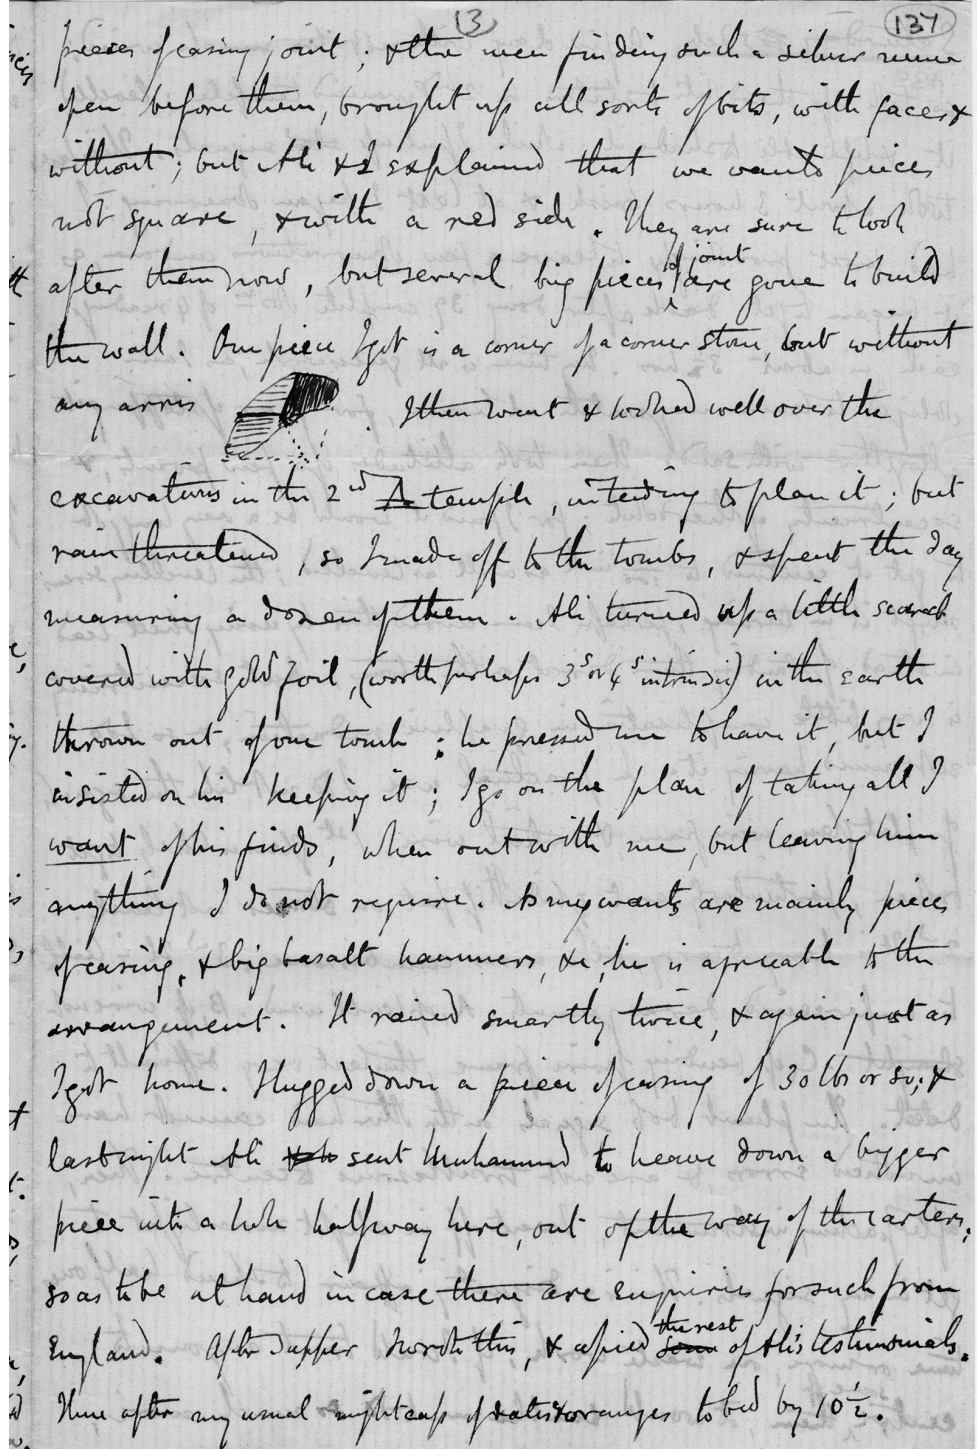 13
137
pieces of casing joint ; & the men finding such a silver mine
open before them, brought up all sorts of bits, with faces &
without ; but Ali & I explained that we wants pieces
not square, & with a red side. They are sure to look
after them now, but several big pieces of joint are gone to build
the wall. One piece I got is a corner of a corner stone, but without
any arris . I then went & looked well over the
excavations in the 2nd Δ temple, intending to plan it ; but
rain threatened, so I made off to the tombs, & spent the day
measuring a dozen of them. Ali turned up a little scarab
covered with gold foil, (worth perhaps 3s or 4s intrinsic) in the earth
thrown out of one tomb ; he pressed me to have it, but I
insisted on his keeping it ; I go on the plan of taking all I
want of his finds, when out with me, but leaving him
anything I do not require. As my wants are mainly pieces
of casing, & big basalt hammers, &c, he is agreeable to the
arrangement. It rained smartly twice, & again just as
I got home. I lugged down a piece of casing of 30 lbs or so ; &
last night Ali sent Muhammed to heave down a bigger
piece into a hole halfway here, out of the way of the carters,
so as to be at hand in case there are enquiries for such from
England. After supper I wrote this, & copied some the rest of Ali's testimonials.
Then after my usual nightcap of dates & oranges to bed by 10½.